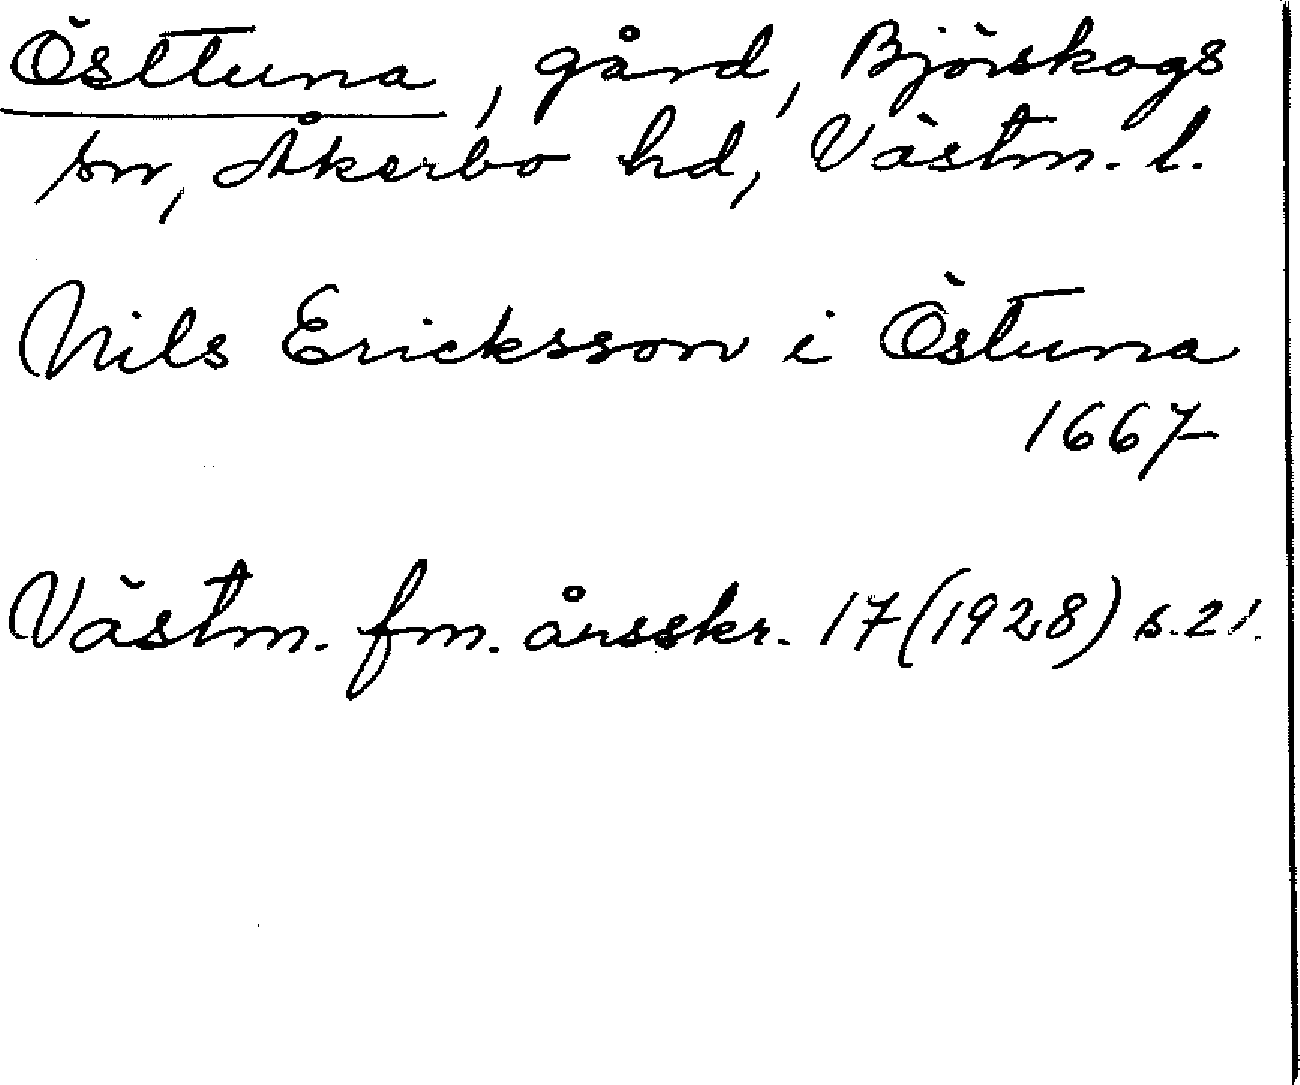 Östtuna, gård, Björskogs
sn, Åkerbo hd, Västm. l.
Nils Ericksson i Östuna
1667
Västm. fm. årsskr. 17 (1928) s. 21.